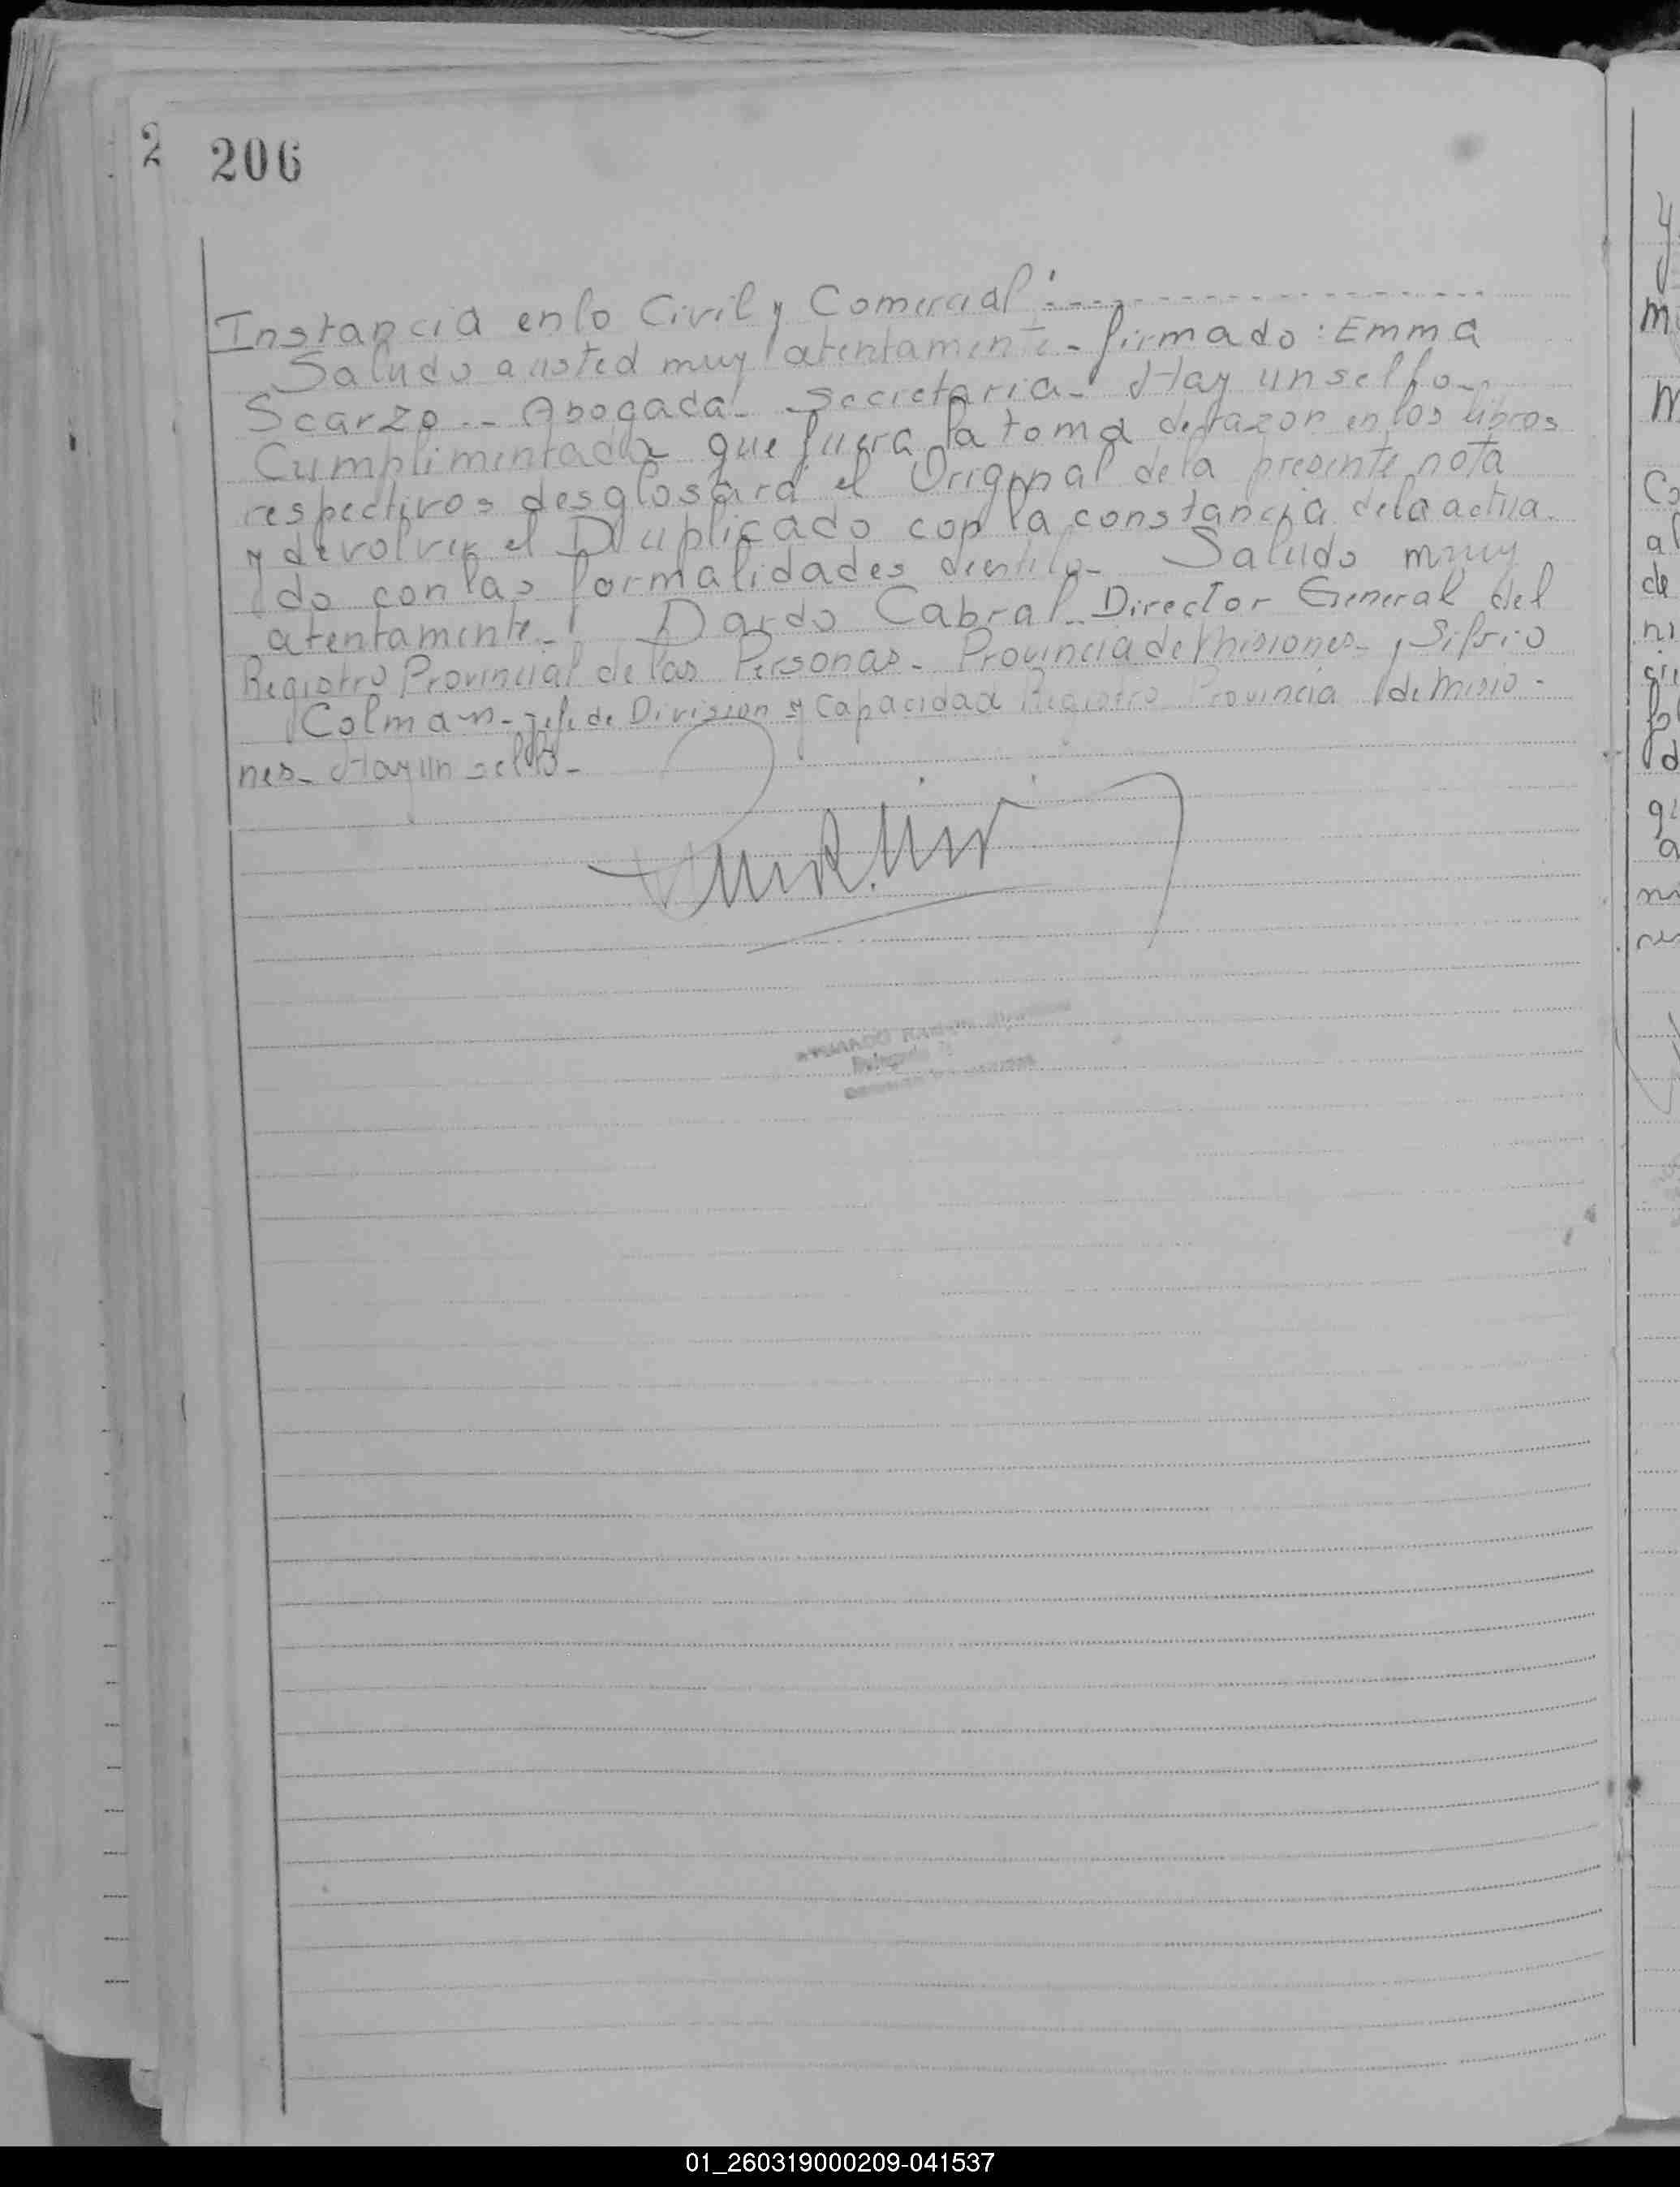 2
206
Instancia en lo Civil y Comercial
Saludo a usted muy atentamente - firmado: Emma
Scarzo -- Abogada - Secretaria - Hay un sello -
Cumplimentada que fuera la toma de razon en los libros
respectivos desglosara el Original de la presente nota
y devolver el Duplicado con la constancia de lo actua
do con las formalidades de - Saludo muy
atentamente - Dardo Cabral - Director General del
Registro Provincial de las Personas - Provincia de Misiones - Silvio
Colman - Jefe de Division y Capacidad Registro Provincia de Misio-
nes - Hay un sello -
01_260319000209-041537